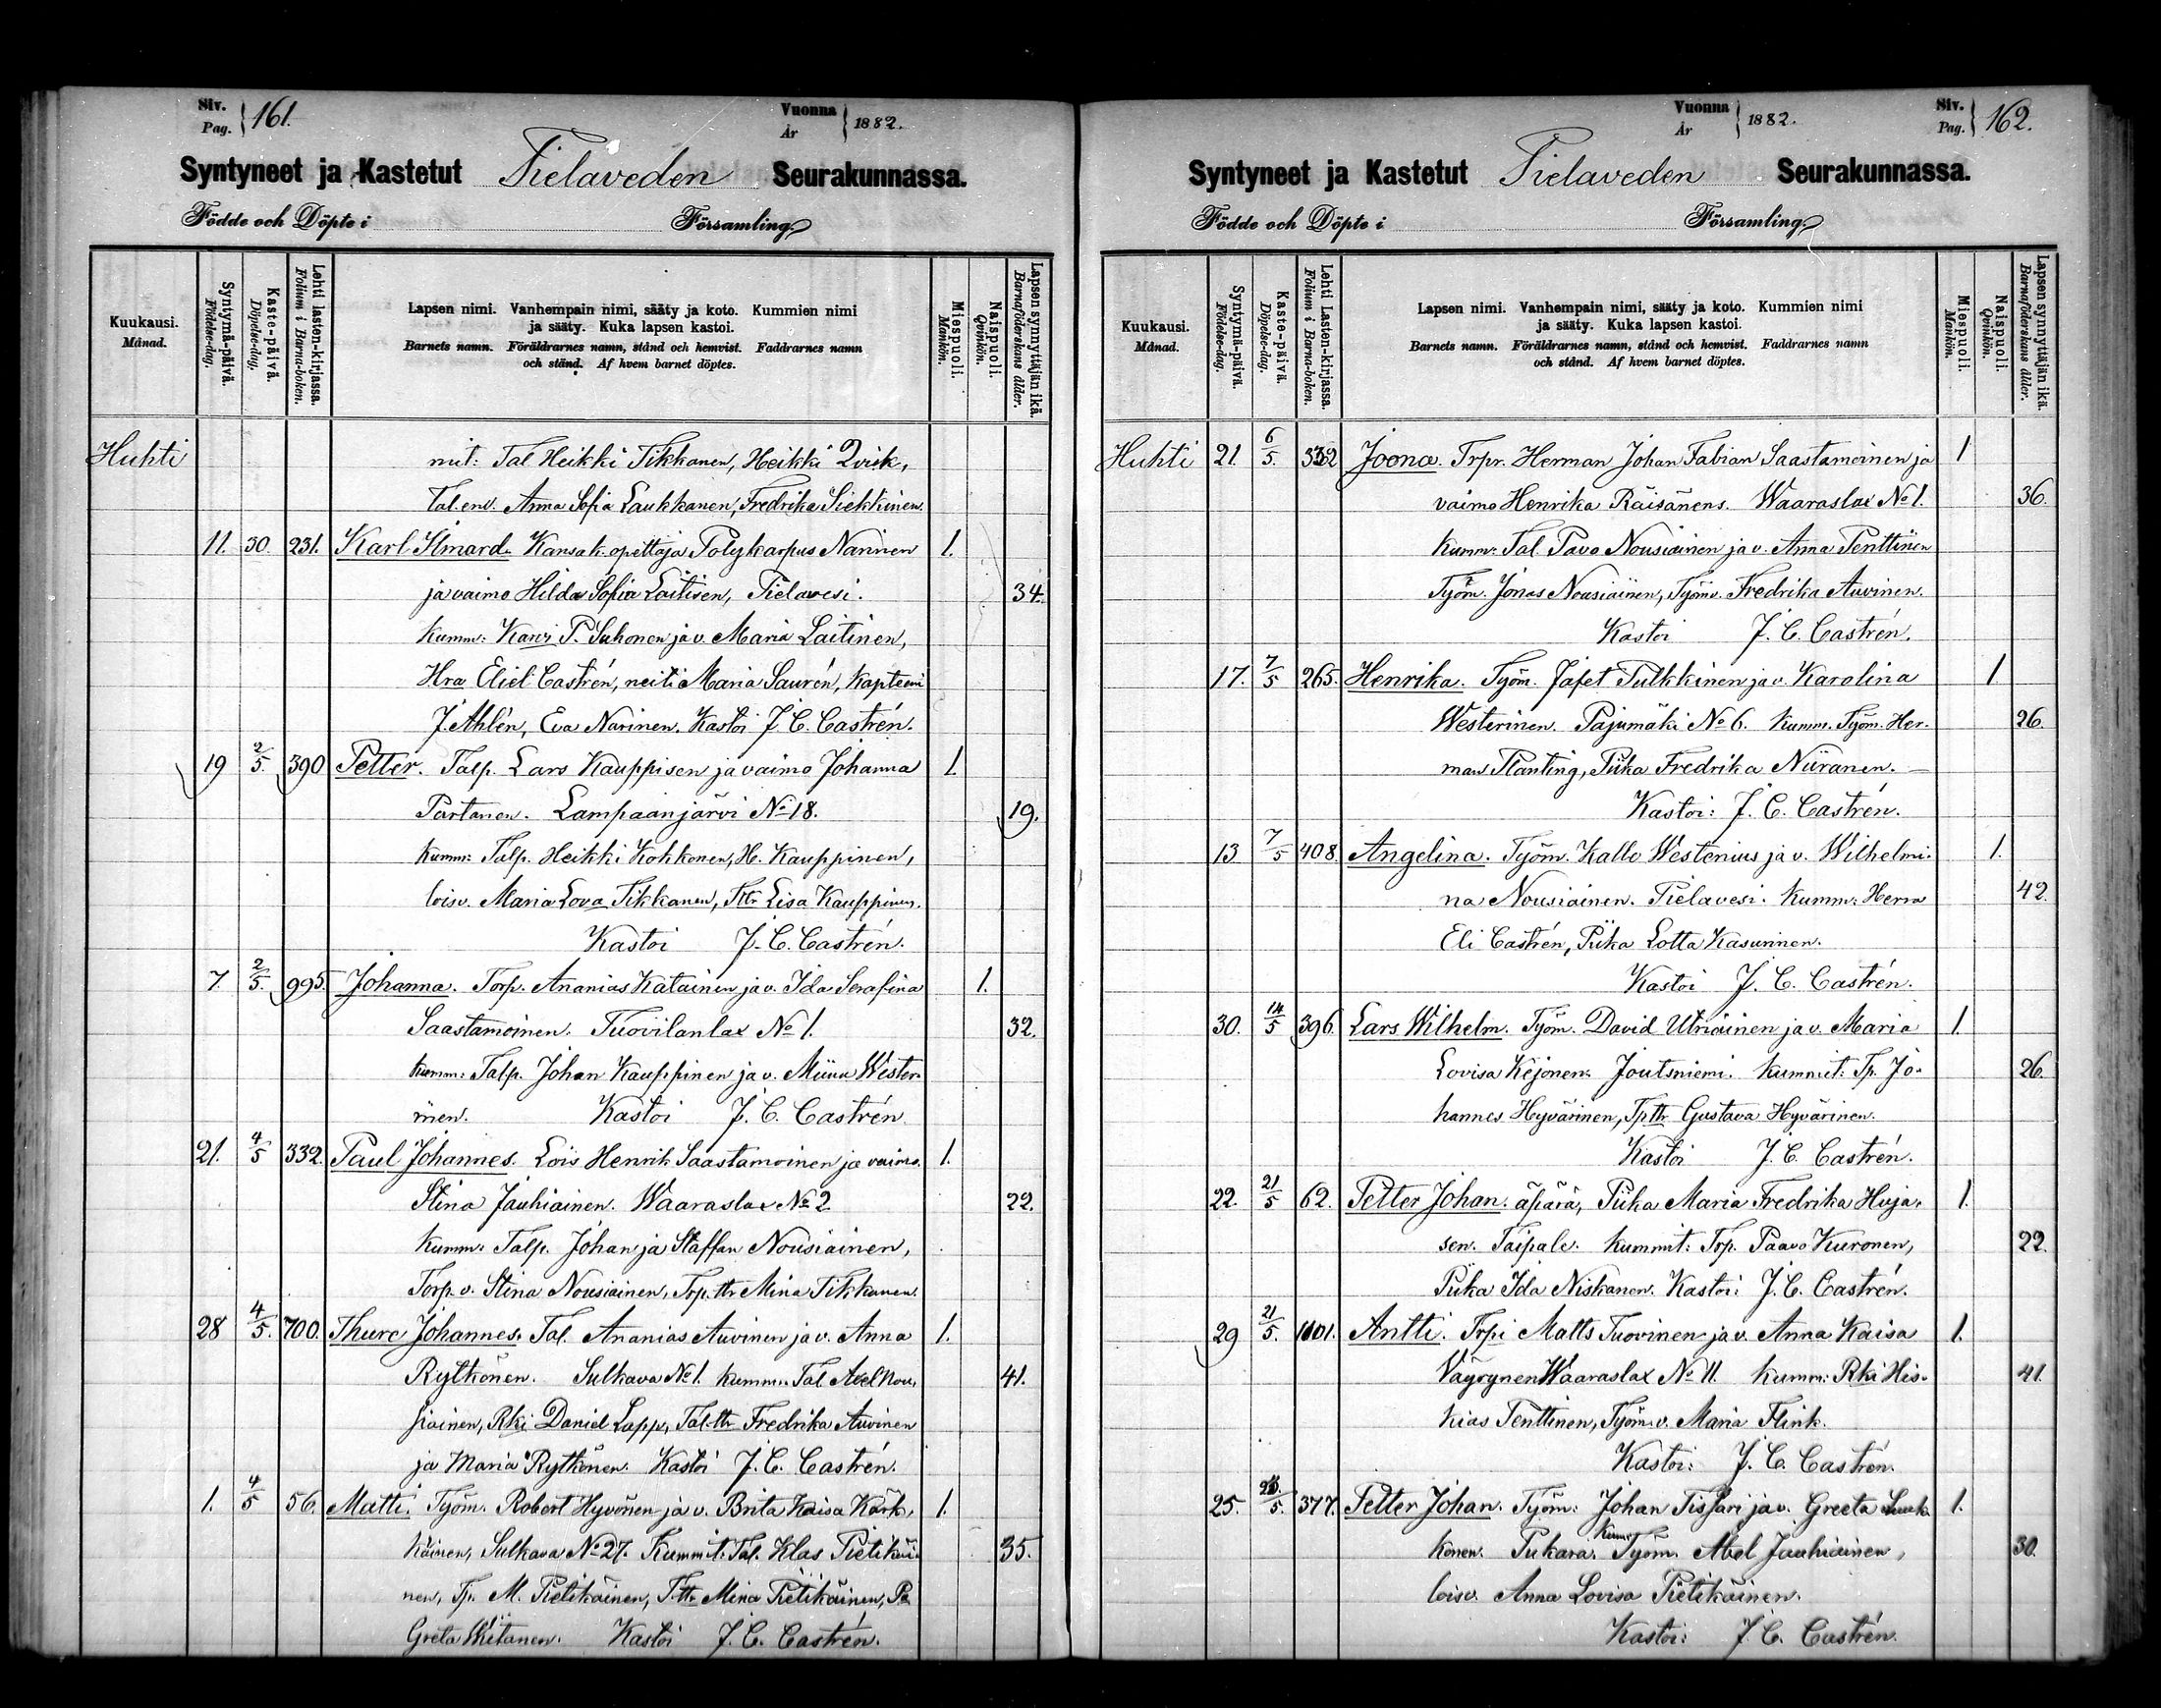 Siv. Pag. 161.
Vuonna År 1882.
Syntyneet ja Kastetut Pielaveden Seurakunnassa.
Födde och Döpte i Församling.
Kuukausi. Månad.
Syntymä-päivä. Födelse-dag.
Kaste-päivä. Döpelse-dag.
Lehti lasten-kirjassa. Folium i Barna-boken.
Lapsen nimi. Vanhempain nimi, sääty ja koto. Kummien nimi
ja sääty. Kuka lapsen kastoi.
Barnets namn. Föräldrarnes namn, stånd och hemvist. Faddrarnes namn
och stånd. Af hvem barnet döptes.
Miespuoli. Mankön.
Naispuoli. Qvinkön.
Lapsen synnyttäjän ikä. Barnaföderskans ålder.
Huhti mit: Tal Heikki Tikkanen, Heikki Qvick,
Tal. em. Anna Sofia Laukkanen, Fredrika Siekkinen.
11. 30. 231. Karl Ilmard. Kansak. opettaja Polykarpus Narinen 1.
ja vaimo Hilda Sofia Laitisen, Pielavesi. 34.
Kumm: Kauri P. Suhonen ja v. Maria Laitinen,
Hra Eliel Castrén, neiti Maria Saurén, Kapteeni
J. Ahlén, Eva Narinen. Kastoi J. C. Castrén.
19 2/5. 390 Petter. Talp. Lars Kauppisen ja vaimo Johanna 1.
Partanen. Lampaanjärvi No 18. 19.
Kumm: Talp. Heikki Kohkonen, H. Kauppinen,
loisv. Maria Lova Tikkanen, Ttr Lisa Kauppinen.
Kastoi J. C. Castrén.
7 2/5. 995. Johanna. Torp. Ananias Katainen ja v. Ida Serafina 1.
Saastamoinen. Tuovilanlax No 1. 32.
Kumm: Talp. Johan Kauppinen ja v. Miina Wester-
inen. Kastoi J. C. Castrén
21. 4/5 332. Paul Johannes. Lois Henrik Saastamoinen ja vaimo 1.
Stina Jauhiainen. Waaraslax No 2 22.
Kumm: Talp. Johan ja Staffan Nousiainen,
Torp. v. Stina Nousiainen, Trp. ttr Mina Tikkanen.
28 4/5. 700. Thure Johannes. Tal. Ananias Auvinen ja v. Anna 1.
Rytkönen. Sulkava No 1. Kumm: Tal. Axel Nou- 41.
siainen, Rki Daniel Lapp, Tal. ttr Fredrika Auvinen
ja Maria Rytkönen. Kastoi J. C. Castrén.
1. 4/5 56. Matti. Työm. Robert Hyvönen ja v. Brita Kaisa Kärk- 1.
käinen, Sulkava No 27. Kummit: Tal. Klas Pietikäi- 35.
nen, Tp. M. Pietikäinen, T. ttr Mina Pietikäinen,
Greta Wiitanen. Kastoi J. C. Castrén.
Vuonna År 1882.
Siv. Pag. 162.
Syntyneet ja Kastetut Pielaveden Seurakunnassa.
Födde och Döpte i Församling.
Kuukausi. Månad.
Syntymä-päivä. Födelse-dag.
Kaste-päivä. Döpelse-dag.
Lehti Lasten-kirjassa. Folium i Barna-boken.
Lapsen nimi. Vanhempain nimi, sääty ja koto. Kummien nimi
ja sääty. Kuka lapsen kastoi.
Barnets namn. Föräldrarnes namn, stånd och hemvist. Faddrarnes namn
och stånd. Af hvem barnet döptes.
Miespuoli. Mankön.
Naispuoli. Qvinkön.
Lapsen synnyttäjän ikä. Barnaföderskans ålder.
Huhti 21. 6/5. 332 Joona. Trpr. Herman Johan Fabian Saastamoinen ja 1
vaimo Henrika Räisänens. Waaraslax No 1. 36.
Kumm: Tal. Pavo Nousiainen ja v. Anna Penttinen
Työm. Jonas Nousiainen, Työmv. Fredrika Auvinen.
Kastoi J. C. Castrén.
17. 7/5 265. Henrika. Työm. Jafet Pulkkinen ja v. Karolina 1
Westerinen. Pajumäki No 6. Kumm. Työm. Her- 26.
man Planting, Piika Fredrika Niiranen.
Kastoi: J. C. Castrén.
13 7/5 408. Angelina. Työm. Kalle Westenius ja v. Wilhelmi- 1.
na Nousiainen. Pielavesi. Kumm: Herra 42.
Eli Castrén, Piika Lotta Kasurinen.
Kastoi J. C. Castrén.
30. 14/5 396. Lars Wilhelm. Työm. David Utriainen ja v. Maria 1.
Lovisa Kejonen. Joutsniemi. Kummit: Tp. Jo- 26.
hannes Hyvärinen, Tp ttr Gustava Hyvärinen.
Kastoi J. C. Castrén.
22. 21/5 62. Petter Johan. äpärä, Piika Maria Fredrika Huja- 1.
sen. Taipale. Kummit: Trp. Paavo Kuronen, 22.
Piika Ida Niskanen. Kastoi: J. C. Castrén.
29 21/5. 1101. Antti. Trpi Matts Tuovinen ja v. Anna Kaisa 1.
Väyrynen Waaraslax No 11. Kumm: Rki His- 41.
kias Penttinen, Työm. v. Maria Flink.
Kastoi: J. C. Castrén.
25. /5. 377. Petter Johan. Työm: Johan Tissari ja v. Greeta 1.
konen. Pukara. Kumm: Työm. Abel Jauhiainen, 30.
loisv. Anna Lovisa Pietikäinen.
Kastoi: J. C. Castrén.